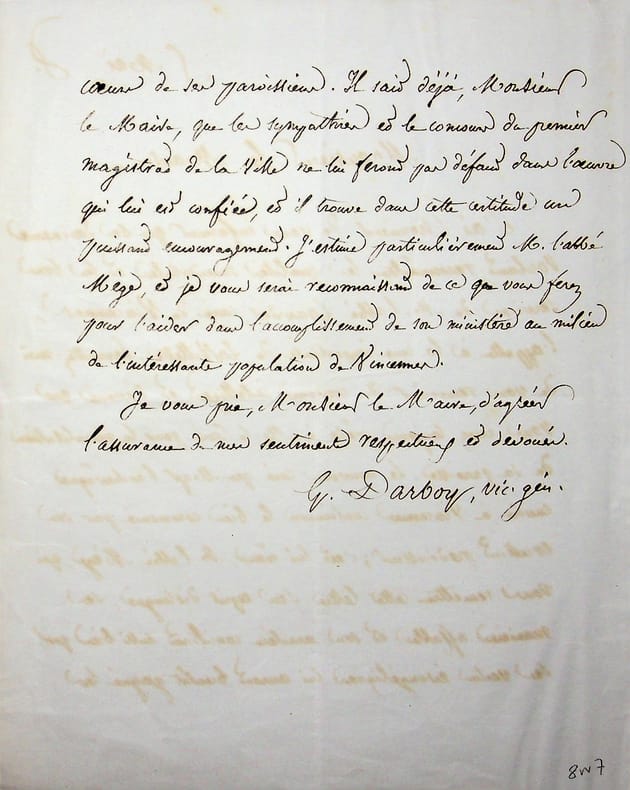 cœurs de ses paroissiens. Il sait déjà, Monsieur
le Maire, que les sympathies et le concours du premier
magistrat de la Ville ne lui feront pas défaut dans l'œuvre
qui lui est confiée, et il trouve dans cette certitude un
puissant encouragement. J'estime particulièrement M. l'abbé
Mège, et je vous serai reconnaissant de ce que vous ferez
pour l'aider dans l'accomplissement de son ministère au milieu
de l'intéressante population de Vincennes.
Je vous prie, Monsieur le Maire, d'agréer
l'assurance de mes sentiments respectueux et dévoués.
G. Darboy, vic. gén.
8w7